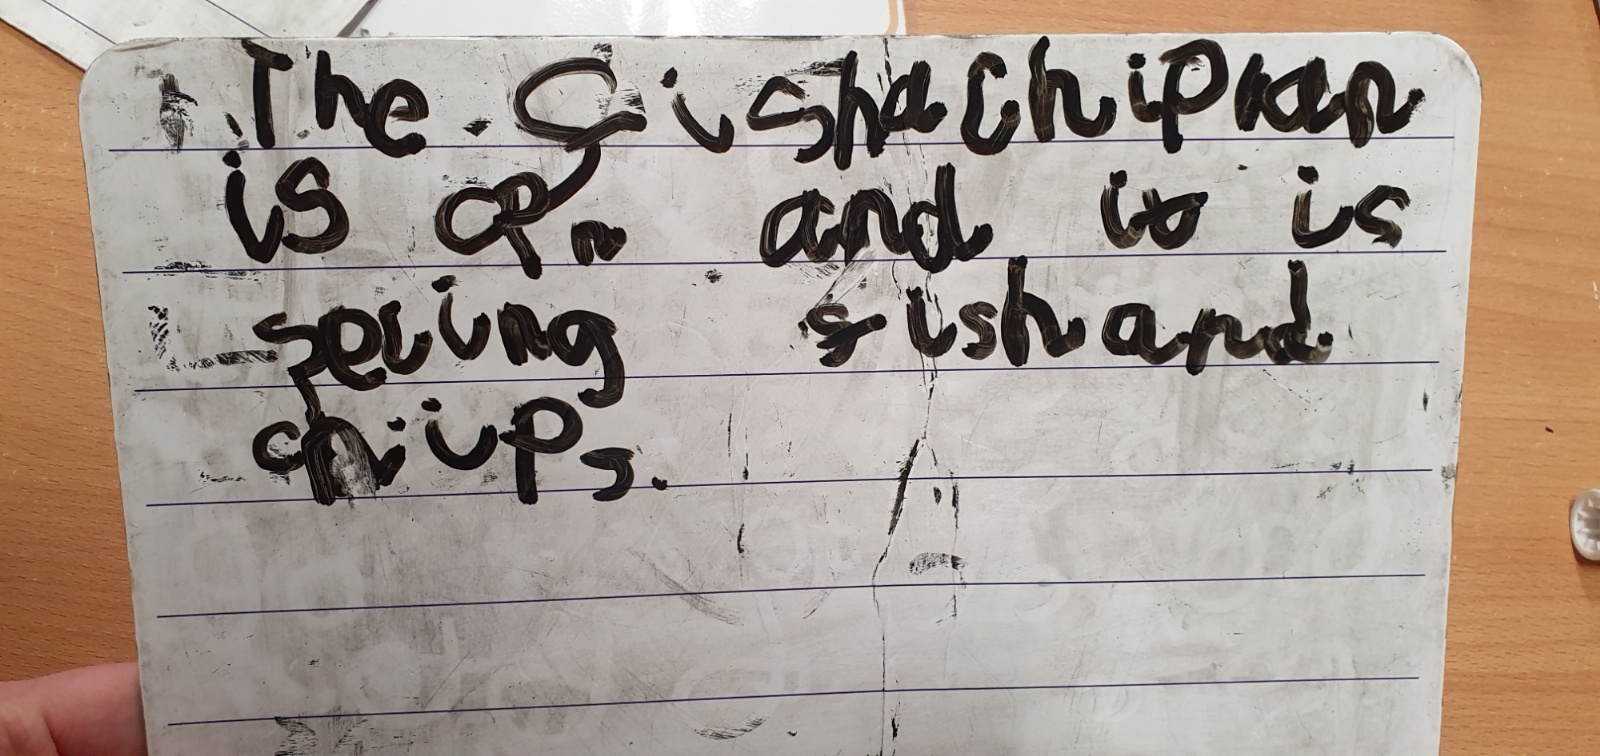 The fishachipvan
is opn and it is
seliing fish and
chips.